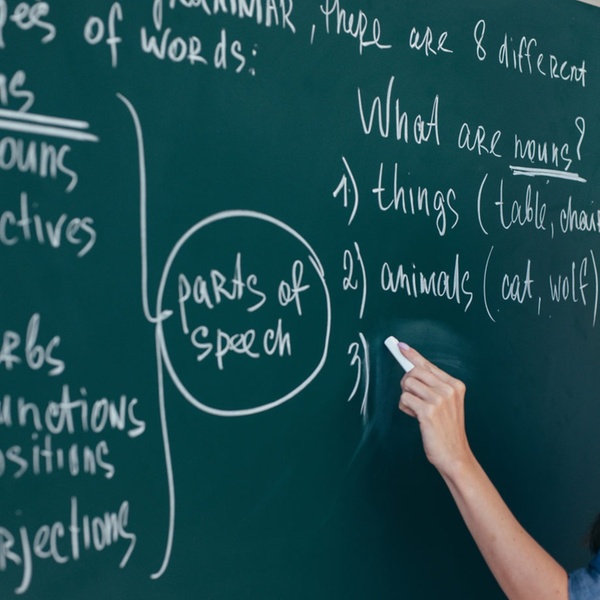 GRAMMAR, there are 8 different
pes of words:
ns
ouns
ctives
rbs
unctions
ositions
rjections
parts of
speech
What are nouns?
1) things (table, chair
2) animals (cat, wolf)
3)